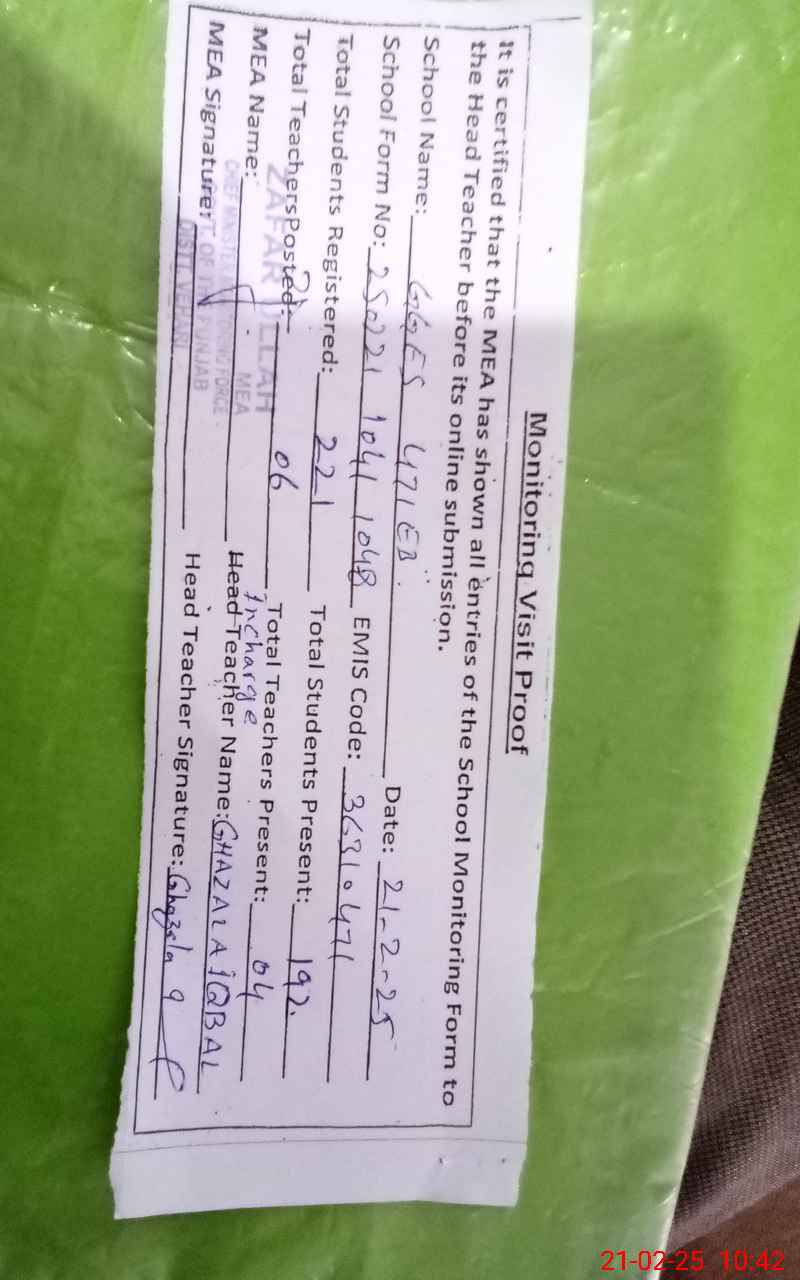 Monitoring Visit Proof
It is certified that the MEA has shown all entries of the School Monitoring Form to
the Head Teacher before its online submission.
School Name: GGES 471 EB Date: 21-2-25
School Form No: 250221 1041 1048 EMIS Code: 36310471
Total Students Registered: 221 Total Students Present: 192
Total Teachers Posted: 06 Total Teachers Present: 04
Incharge
MEA Name: ZAFAR ULLAH Head Teacher Name: GHAZALA IQBAL
MEA
CHIEF MINISTER MONITORING FORCE
MEA Signature: Head Teacher Signature: Ghazala
GOVT. OF THE PUNJAB
DISTT. VEHARI
21-02-25 10:42